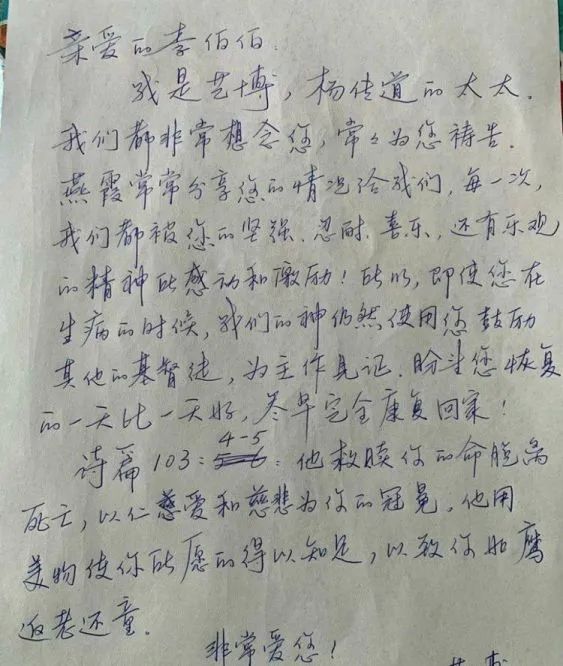 亲爱的李伯伯.
我是艺博，杨传道的太太.
我们都非常想念您，常々为您祷告.
燕霞常常分享您的情况给我们，每一次，
我们都被您的坚强、忍耐、喜乐，还有乐观
的精神所感动和激励！所以，即使您在
生病的时候，我们的神仍然使用您鼓励
其他的基督徒，为主作见证. 盼望您恢复
的一天比一天好，尽早完全康复回家！
4-5
诗篇103：5-6：他救赎你的命脱离
死亡，以仁慈爱和慈悲为你的冠冕。他用
美物使你所愿的得以知足，以致你如鹰
返老还童。
非常爱您！